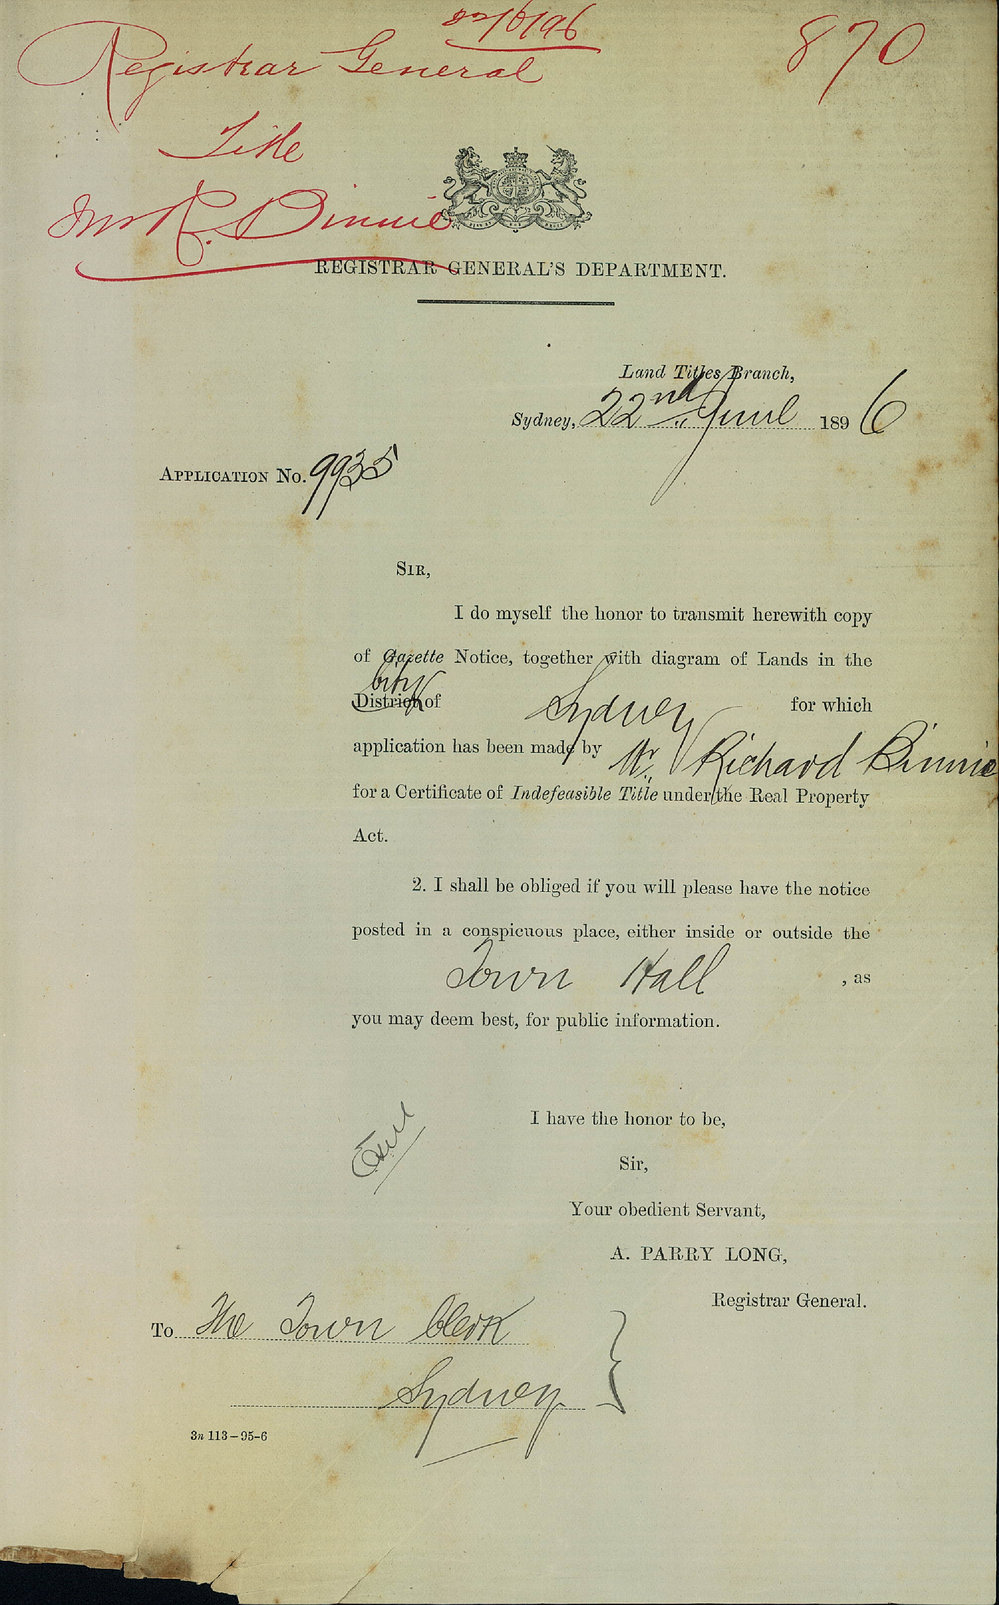 22/6/96
870
Registrar General
Title
Mr R. Binnie
REGISTRAR GENERAL'S DEPARTMENT.
Land Titles Branch,
Sydney, 22nd June 1896
APPLICATION NO. 9935
SIR,
I do myself the honor to transmit herewith copy
of Gazette Notice, together with diagram of Lands in the
City
District of Sydney for which
application has been made by Mr. Richard Binnie
for a Certificate of Indefeasible Title under the Real Property
Act.
2. I shall be obliged if you will please have the notice
posted in a conspicuous place, either inside or outside the
Town Hall , as
you may deem best, for public information.
I have the honor to be,
Sir,
Your obedient Servant,
A. PARRY LONG,
Registrar General.
To The Town Clerk
Sydney
3n 113-95-6